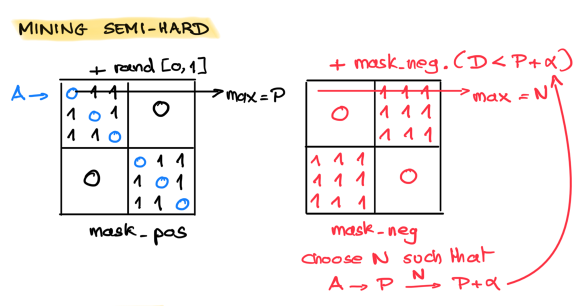 MINING SEMI-HARD
+ round [0,1]
A → 0 1 1 → max = P
1 0 1 0
1 1 0
0 0 1 1
1 0 1
1 1 0
mask_pos
+ mask_neg.(D < P+α)
1 1 1 → max = N
0 1 1 1
1 1 1
1 1 1
1 1 1 0
1 1 1
mask_neg
choose N such that
A → P N → P+α